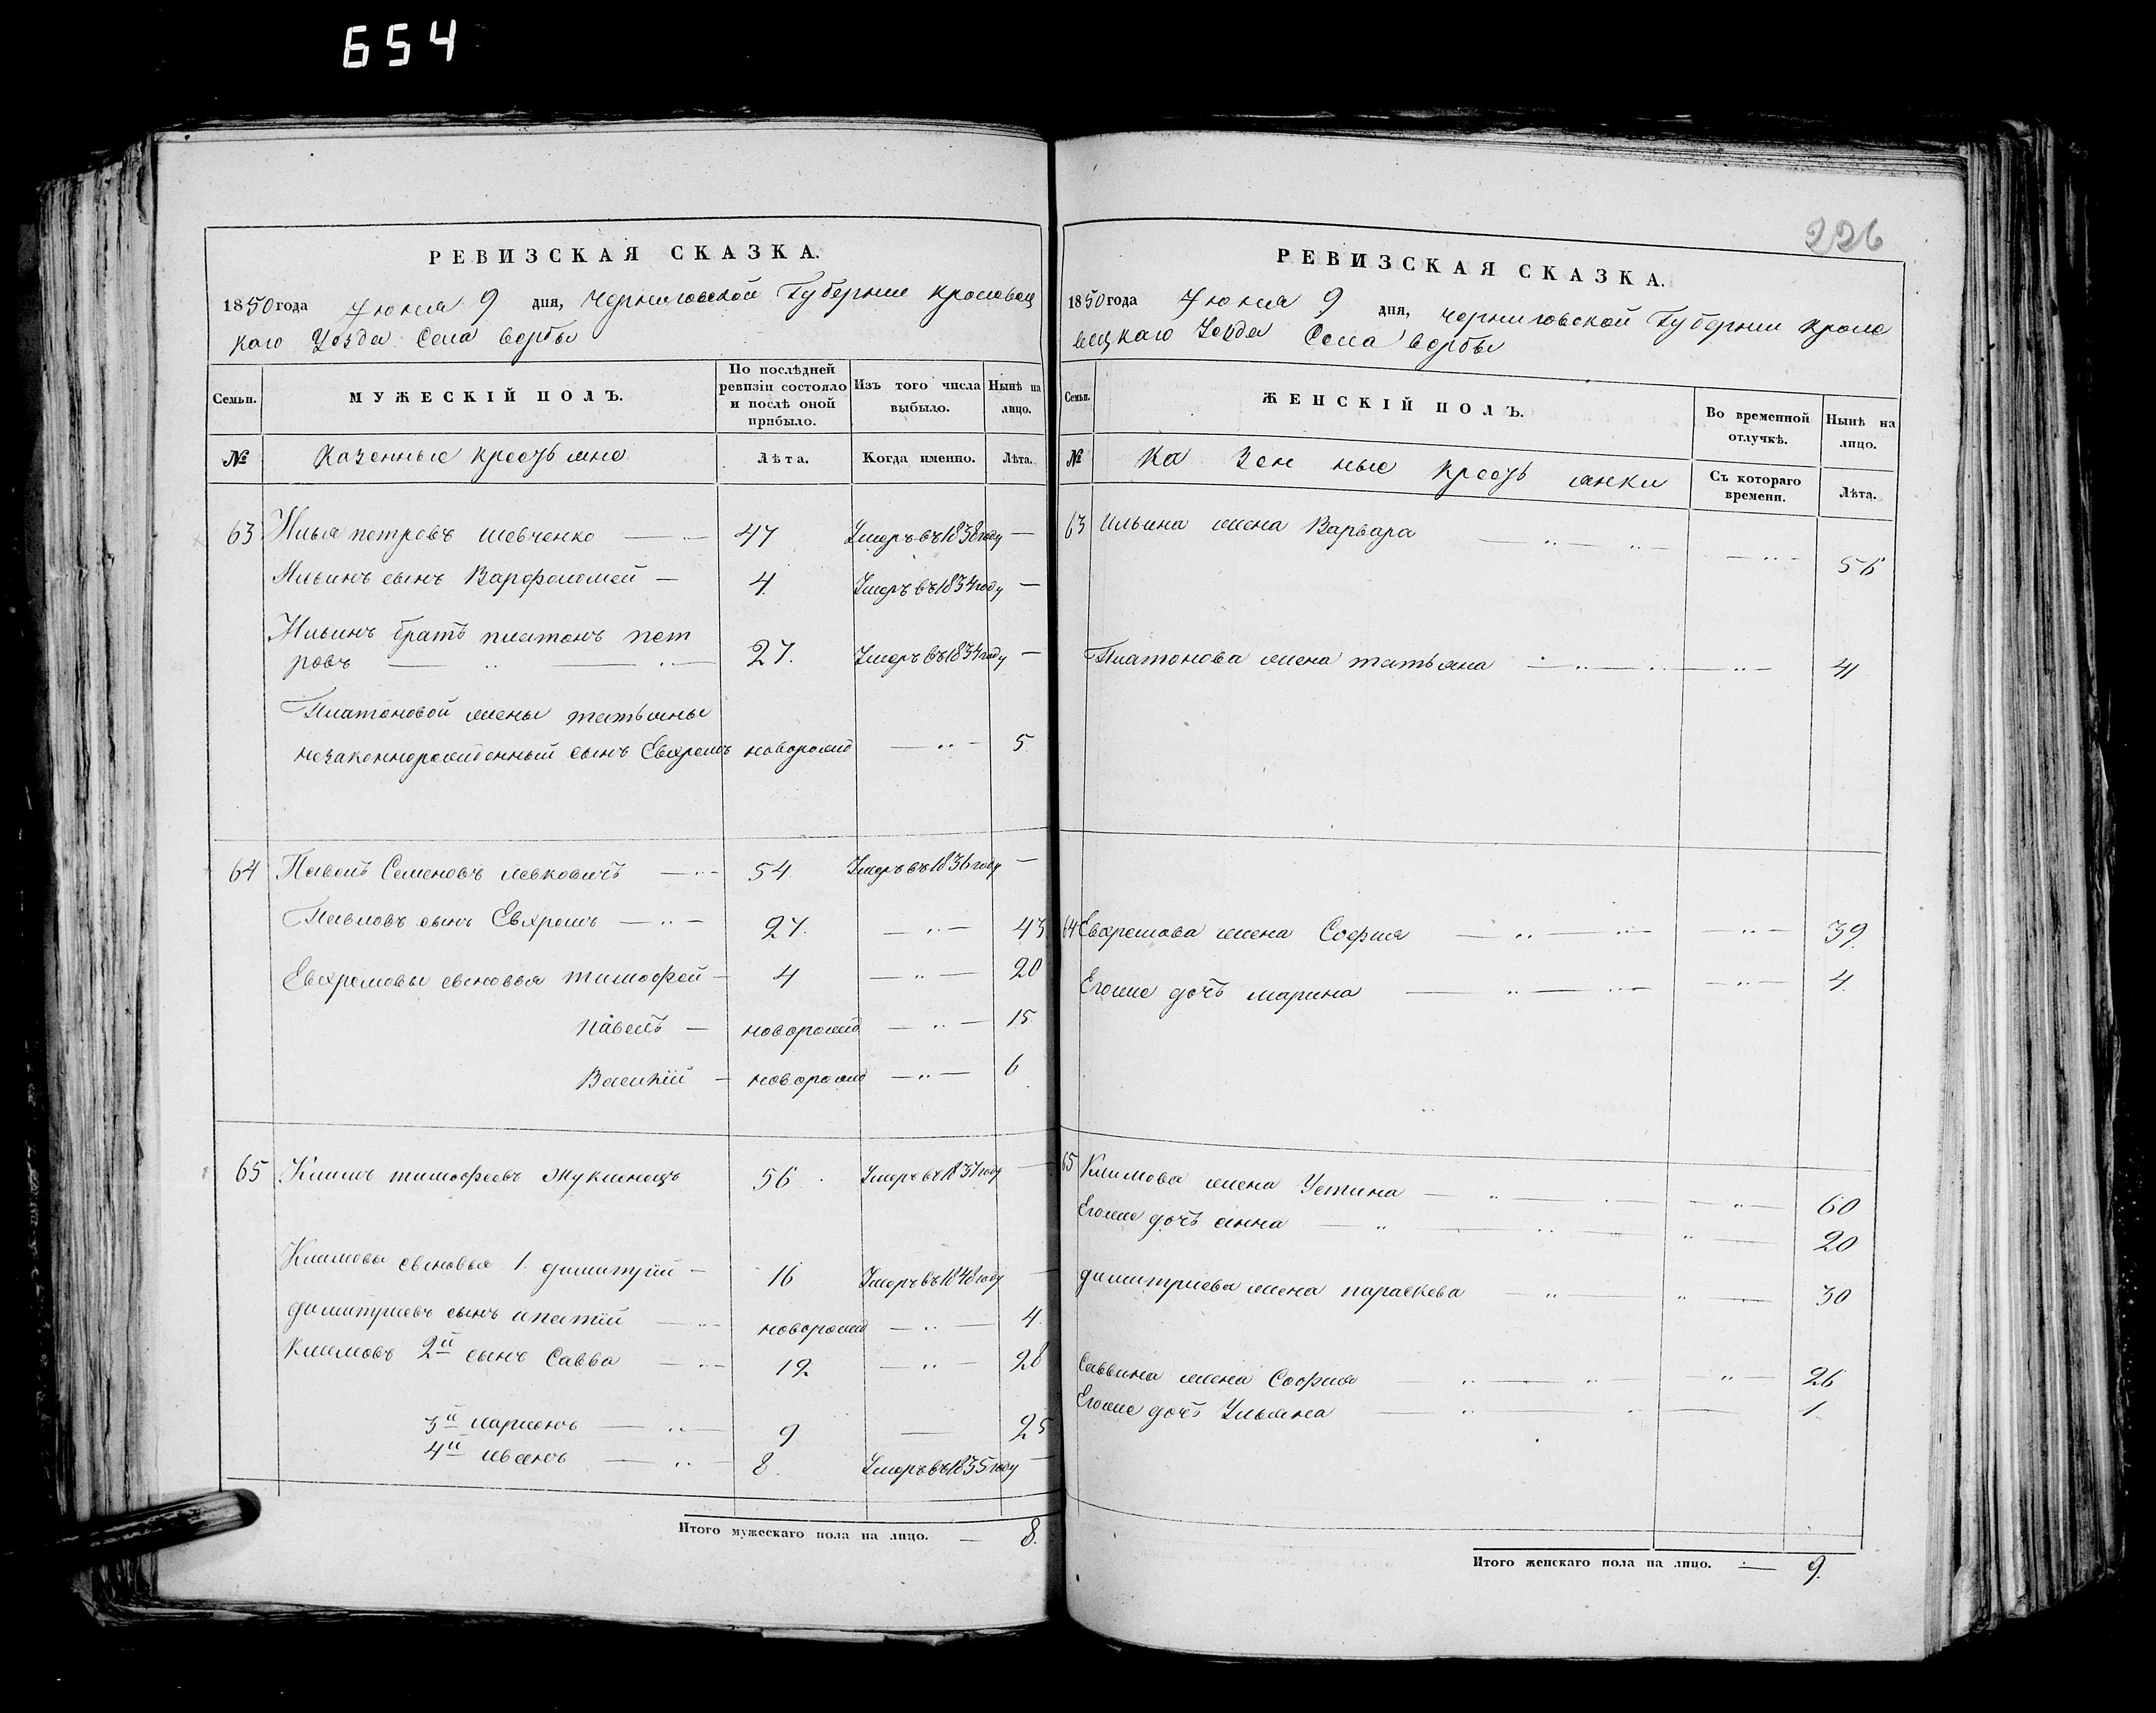 654
РЕВИЗСКАЯ СКАЗКА.
1850 года Июня 9 дня, Черниговской Губернии Кролевец
каго Уезда Села Вербы
Семьи. МУЖЕСКІЙ ПОЛЪ. По послѣдней ревизіи состояло и послѣ оной прибыло. Изъ того числа выбыло. Нынѣ на лицо.
№ Казенные крестьяне Лѣта. Когда именно. Лѣта.
63 Илья петровъ шевченко — 47 Умеръ въ 1838 году —
Ильинъ сынъ Варфоломей — 4. Умеръ въ 1834 году —
Ильинъ братъ платонъ пет
ровъ — 27. Умеръ въ 1834 году —
Платоновой жены татьяны
незаконнорожденный сынъ Евхремъ новорожд — 5
64 Павелъ Семеновъ левковичъ — 54 Умеръ въ 1836 году —
Павловъ сынъ Евхремъ — 27. — 43
Евхремовы сыновья тимофей — 4 — 20
павелъ — новорожд — 15
Василій — новорожд — 6
65 Климъ тимофеевъ Жуклинецъ 56 Умеръ въ 1837 году —
Климовы сыновья 1. димитрій — 16 Умеръ въ 1848 году —
димитриевъ сынъ ипатій — новорожд — 4.
Климовъ 2й сынъ Савва — 12 — 28
3й ларионъ — 9 — 25
4й иванъ — 8. Умеръ въ 1835 году —
Итого мужескаго пола на лицо. — 8.
226
РЕВИЗСКАЯ СКАЗКА.
1850 года Июня 9 дня, черниговской Губернии Кроле
вецкаго Уезда Села вербы
Семьи. ЖЕНСКІЙ ПОЛЪ. Во временной отлучкѣ. Нынѣ на лицо.
№ Казенные крестьянки Съ котораго времени. Лѣта.
63 Ильина жена Варвара — 56
Платонова жена татьяна — 41
64 Евхремова жена София — 39.
Егоже дочъ марина — 4.
65 Климова жена Устина — 60
Егоже дочъ анна — 20
димитриева жена параскева — 30
Саввина жена София — 26
Егоже дочъ Ульяна — 1
Итого женскаго пола на лицо. — 9.